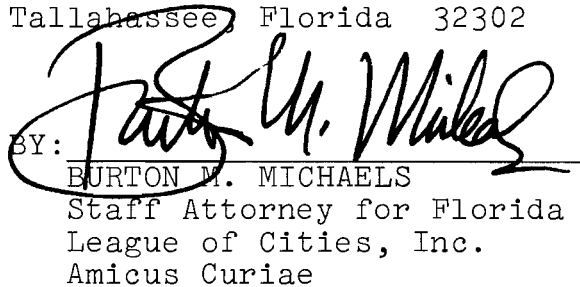 Tallahassee, Florida 32302
Burton M. Michaels
BY:
BURTON M. MICHAELS
Staff Attorney for Florida
League of Cities, Inc.
Amicus Curiae